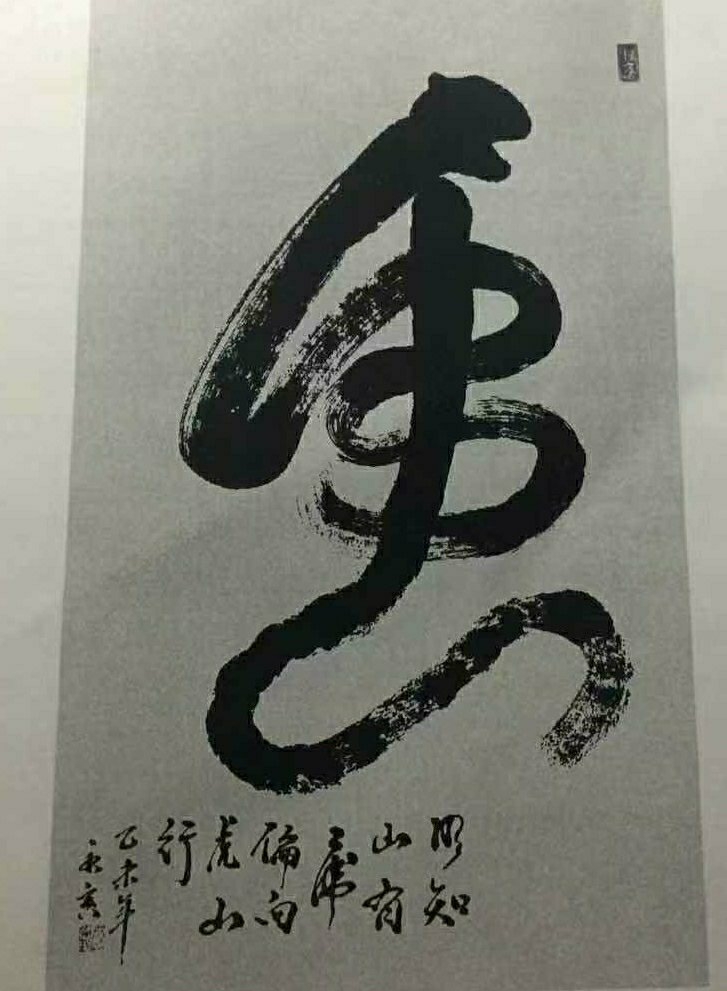 虎
明知
山有
虎
偏向
虎山
行
乙未年
永